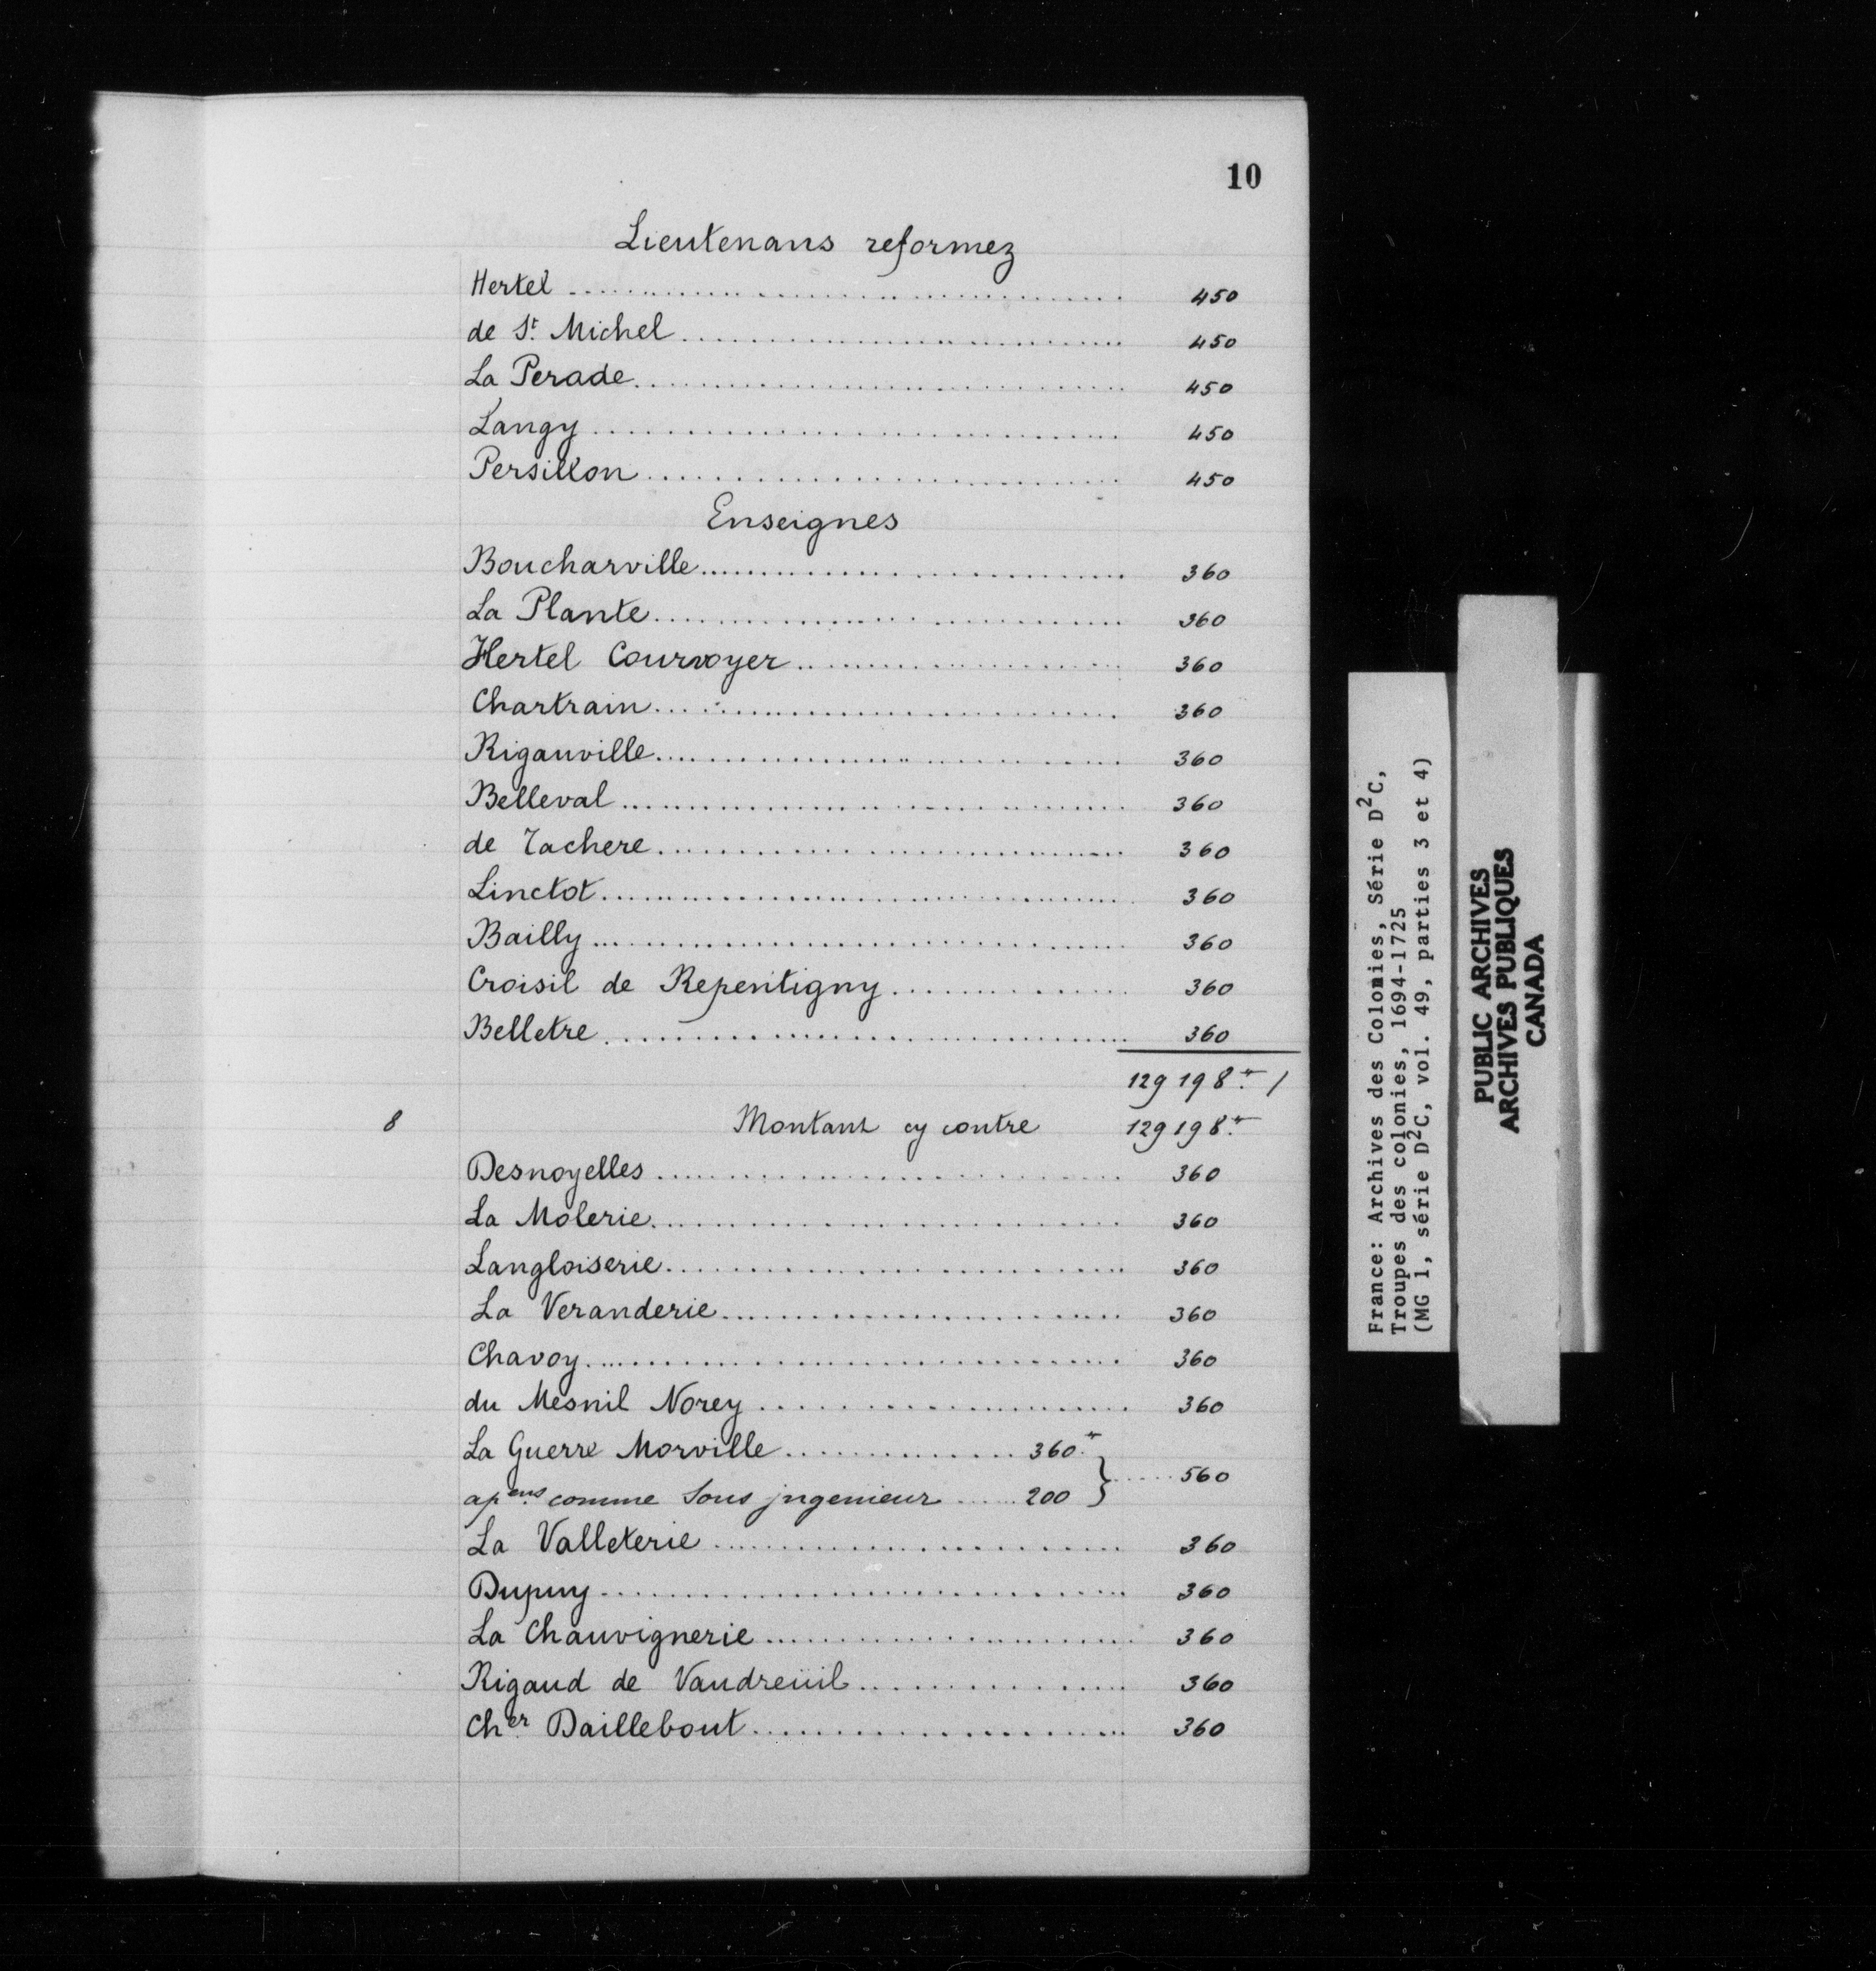 10
Lieutenans reformez
Hertel .......... 450
de St. Michel .......... 450
La Perade .......... 450
Langy .......... 450
Persillon .......... 450
Enseignes
Boucharville .......... 360
La Plante .......... 360
Hertel Courvoyer .......... 360
Chartrain .......... 360
Rigauville .......... 360
Belleval .......... 360
de Tachere .......... 360
Linctot .......... 360
Bailly .......... 360
Croisil de Repentigny .......... 360
Belletre .......... 360
129198 ₶ /
8 Montant cy contre 129198 ₶
Desnoyelles .......... 360
La Molerie .......... 360
Langloiserie .......... 360
La Veranderie .......... 360
Chavoy .......... 360
du Mesnil Norey .......... 360
La Guerre Morville .......... 360 ₶
apens comme Sous jngenieur ...... 200 } ...... 560
La Valleterie .......... 360
Dupuy .......... 360
La Chauvignerie .......... 360
Rigaud de Vaudreüil .......... 360
Cher Daillebout .......... 360
France: Archives des Colonies, Série D²C,
Troupes des colonies, 1694-1725
(MG 1, série D²C, vol. 49, parties 3 et 4)
PUBLIC ARCHIVES
ARCHIVES PUBLIQUES
CANADA